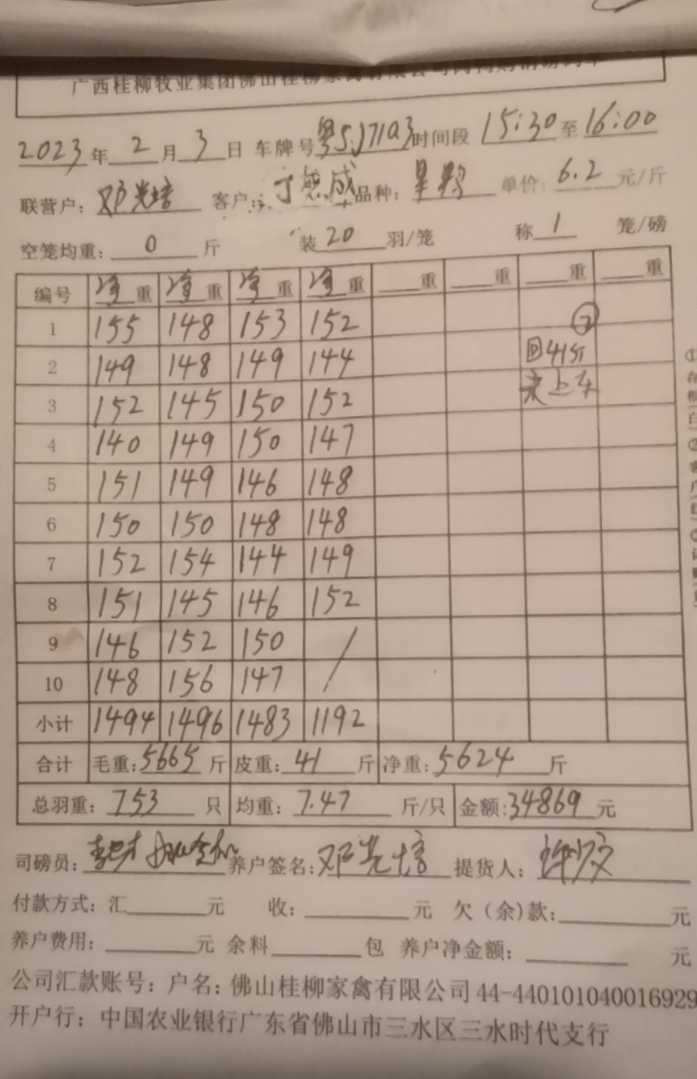 广西桂柳牧业集团佛山桂柳家禽有限公司
2023年2月3日 车牌号粤S 时间段15:30至16:00
联营户: 邓光培 客户: 品种: 单价: 6.2元/斤
空笼均重: 0斤 装20羽/笼 称1笼/磅
编号 净重 净重 净重 净重 重 重 重 重
1 155 148 153 152 ②
2 149 148 149 144 回41斤
3 152 145 150 152 未上车
4 140 149 150 147
5 151 149 146 148
6 150 150 148 148
7 152 154 144 149
8 151 145 146 152
9 146 152 150 /
10 148 156 147 /
小计 1494 1496 1483 1192
合计 毛重:5665斤 皮重:41斤 净重:5624斤
总羽重:753只 均重:7.47斤/只 金额:34869元
司磅员: 养户签名:邓光培 提货人:
付款方式:汇 元 收: 元 欠(余)款: 元
养户费用: 元 余料 包 养户净金额: 元
公司汇款账号:户名:佛山桂柳家禽有限公司44-440101040016929
开户行:中国农业银行广东省佛山市三水区三水时代支行